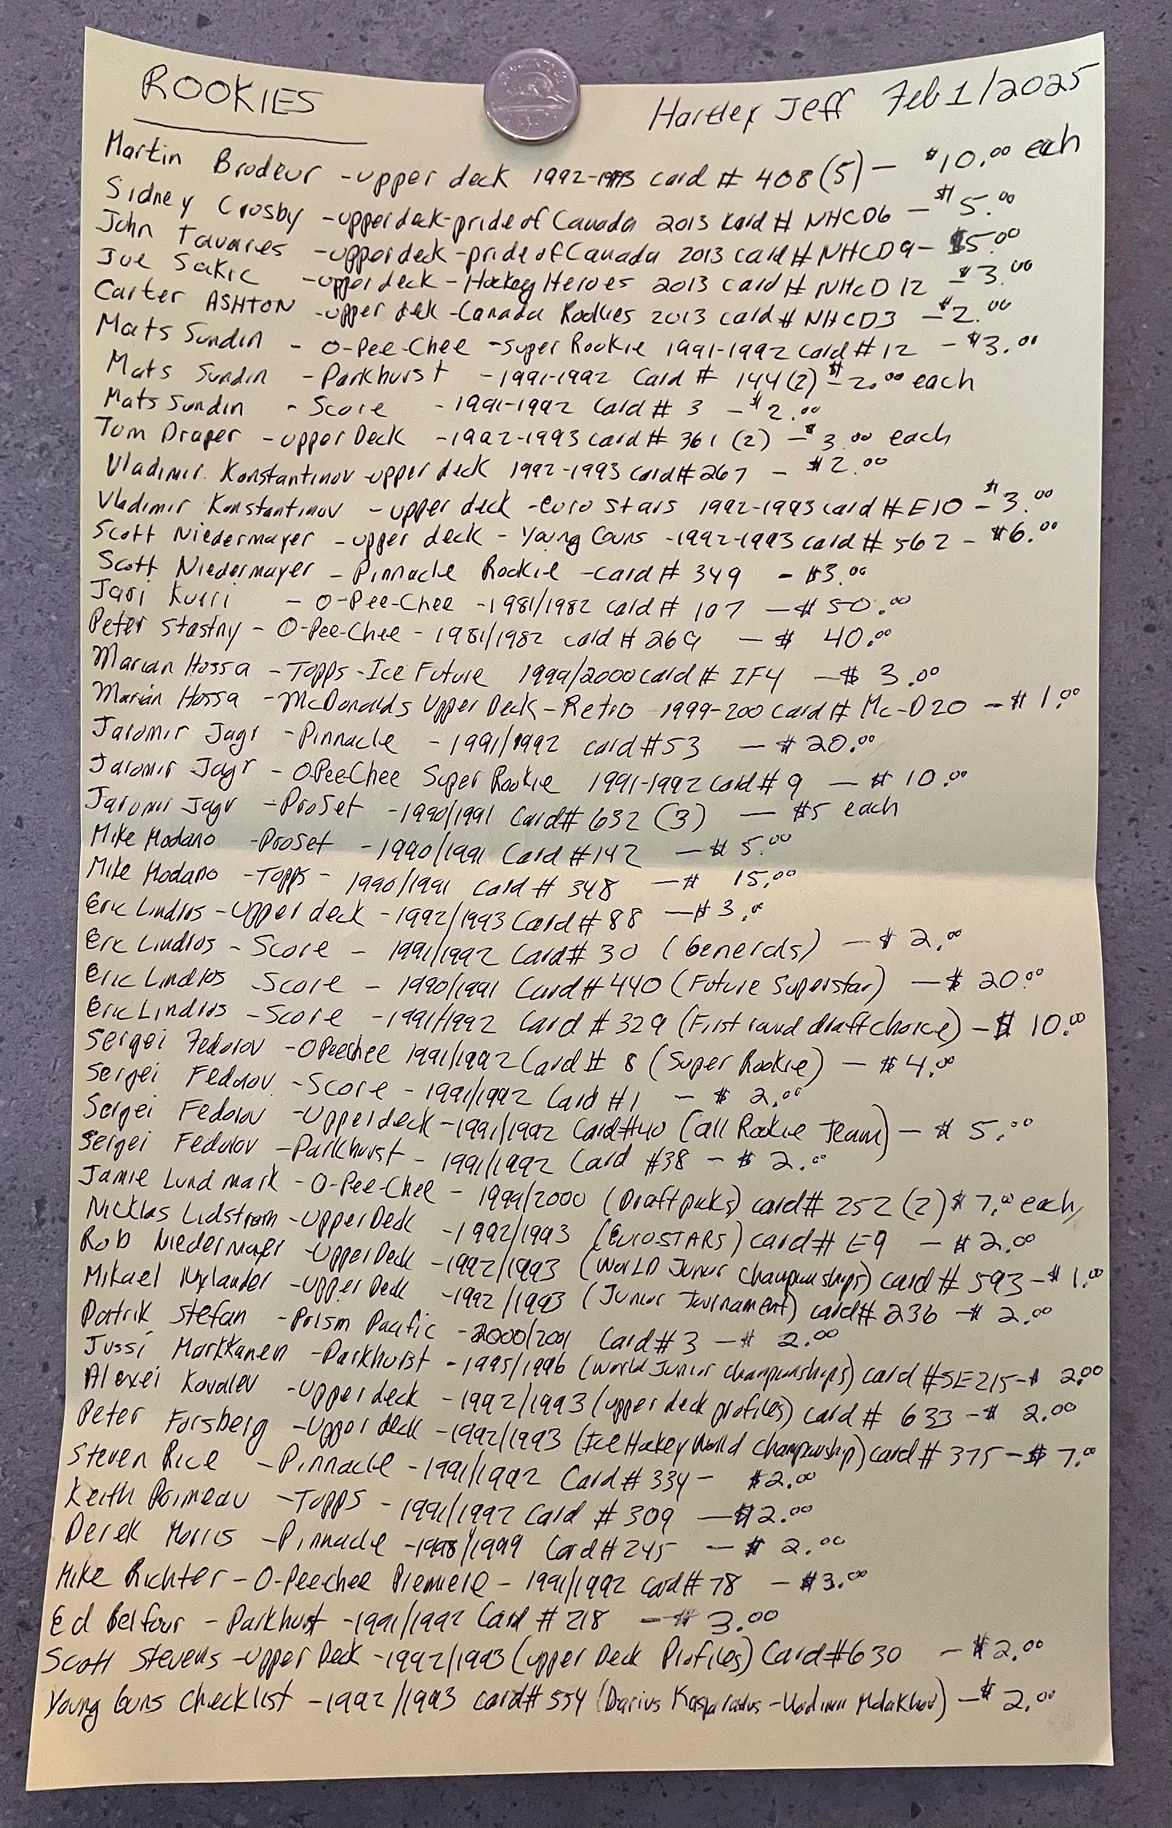 ROOKIES
Hartley Jeff Feb 1/2025
Martin Brodeur - upper deck 1992-1993 card # 408 (5) - $10.00 each
Sidney Crosby - upper deck - pride of Canada 2013 card # NHCD6 - $5.00
John Tavares - upper deck - pride of Canada 2013 card # NHCD9 - $5.00
Joe Sakic - upper deck - Hockey Heroes 2013 card # NHCD 12 - $3.00
Carter ASHTON - upper dek - Canada Rookies 2013 card # NHCD3 - $2.00
Mats Sundin - O-Pee-Chee - Super Rookie 1991-1992 card # 12 - $3.00
Mats Sundin - Parkhurst - 1991-1992 Card # 144 (2) - $2.00 each
Mats Sundin - Score - 1991-1992 Card # 3 - $2.00
Tom Draper - upper Deck - 1992-1993 card # 361 (2) - $3.00 each
Vladimir Konstantinov - upper deck 1992-1993 card # 267 - $2.00
Vladimir Konstantinov - upper deck - euro stars 1992-1993 card # E10 - $3.00
Scott Niedermayer - upper deck - Young Guns - 1992-1993 card # 562 - $6.00
Scott Niedermayer - Pinnacle Rookie - card # 349 - $3.00
Jari Kurri - O-Pee-Chee - 1981/1982 card # 107 - $50.00
Peter Stastny - O-Pee-Chee - 1981/1982 card # 269 - $ 40.00
Marian Hossa - Topps - Ice Future 1999/2000 card # IF4 - $ 3.00
Marian Hossa - McDonalds Upper Deck - Retro 1999-200 card # Mc-D20 - $ 1.00
Jaromir Jagr - Pinnacle - 1991/1992 card #53 - $ 20.00
Jaromir Jagr - OPeeChee Super Rookie 1991-1992 card # 9 - $ 10.00
Jaromir Jagr - ProSet - 1990/1991 Card# 632 (3) - $5 each
Mike Modano - ProSet - 1990/1991 Card #142 - $ 5.00
Mike Modano - Topps - 1990/1991 card # 348 - $ 15.00
Eric Lindros - Upper deck - 1992/1993 Card # 88 - $3.00
Eric Lindros - Score - 1991/1992 Card# 30 (Generals) - $ 2.00
Eric Lindros Score - 1990/1991 Card # 440 (Future Superstar) - $ 20.00
Eric Lindros - Score - 1991/1992 Card # 329 (First round draft choice) - $ 10.00
Sergei Fedorov - OPeechee 1991/1992 Card # 8 (Super Rookie) - $4.00
Sergei Fedorov - Score - 1991/1992 Card #1 - $ 2.00
Sergei Fedorov - Upper deck - 1991/1992 Card#40 (all Rookie Team) - $ 5.00
Sergei Fedorov - Parkhurst - 1991/1992 Card #38 - $ 2.00
Jamie Lundmark - O-Pee-Chee - 1999/2000 (Draft picks) card# 252 (2) $ 7.00 each
Nicklas Lidstrom - Upper Deck - 1992/1993 (EuroSTARS) card # E9 - $ 2.00
Rob Niedermayer - Upper Deck - 1992/1993 (WorLD Junior Championships) card # 593 - $ 1.00
Mikael Nylander - Upper Deck - 1992/1993 (Junior Tournament) card# 236 - $ 2.00
Patrik Stefan - Prism Pacific - 2000/2001 Card # 3 - $ 2.00
Jussi Markkanen - Parkhurst - 1995/1996 (World Junior Championships) card #SE215 - $ 2.00
Alexei Kovalev - Upper deck - 1992/1993 (upper deck profiles) card # 633 - $ 2.00
Peter Forsberg - Upper deck - 1992/1993 (Ice Hockey World Championship) card # 375 - $ 7.00
Steven Rice - Pinnacle - 1991/1992 Card # 334 - $2.00
Keith Primeau - Topps - 1991/1992 Card # 309 - $2.00
Derek Morris - Pinnacle - 1998/1999 Card #245 - $ 2.00
Mike Richter - O-Peechee Premiere - 1991/1992 card # 78 - $3.00
Ed Belfour - Parkhust - 1991/1992 Card # 218 - $ 3.00
Scott Stevens - Upper Deck - 1992/1993 (Upper Deck Profiles) Card #630 - $2.00
Young Guns Checklist - 1992/1993 card# 554 (Darius Kasparaitus - Vladimir Malakhov) - $ 2.00